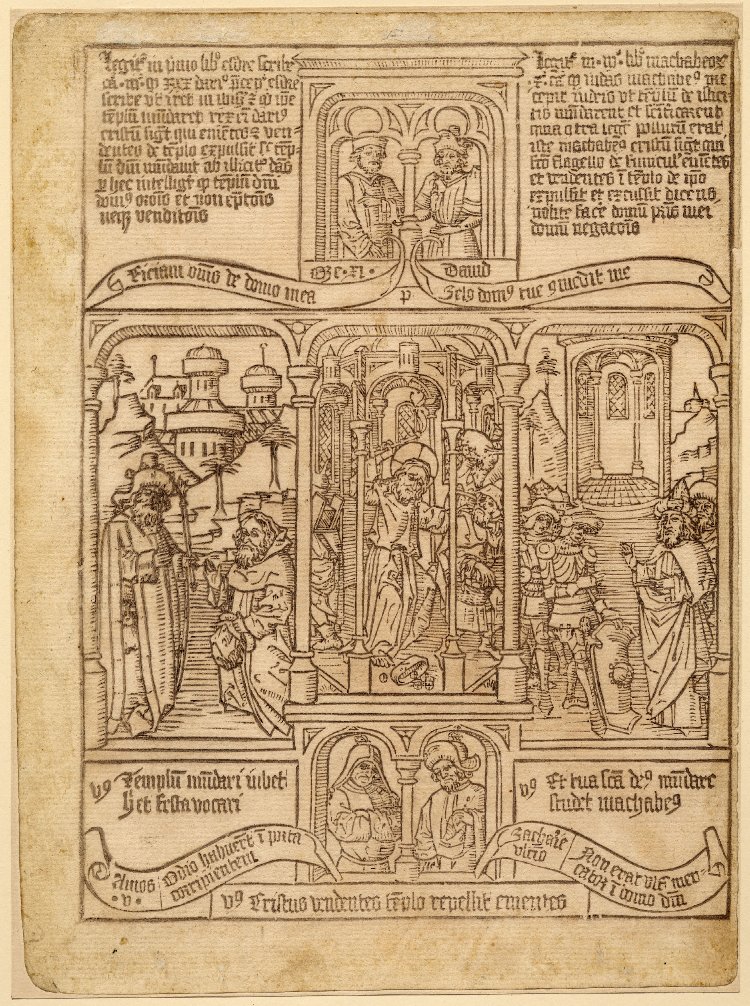 Legit᷒ in p̄mio lib᷒ esdre scribe
ca̅ · q̅ rex dari᷒ p̄cep᷒ esdre
scribe vt iret in q̅ ip̄e
tēplū mūdaret rex dari᷒
cristū sigt᷒ qui emētes z ven-
dentes de tēplo expulsit tēp-
lū dn̄i mūdauit ab illicit᷒
p hec intelligt᷒ q̅ tēplū dn̄i
dom᷒ orōis et non ēptōis
neqꝫ venditōis
Legit᷒ lib᷒ machabeoꝝ
ca̅ q̅ iudas machabe᷒ p̄
cepit iudeis vt tēplū de illici
tis mūdarent et
q̅a ꝯtra legē pollutū erat
iste machabe᷒ cristū sigt᷒ qui
fc̄o flagello de funicul᷒ emētes
et vendentes ī tēplo de ip̄o
expulsit et excussit dicens
nolite face domū pr̄is mei
domū negatōis
Eiciam vos de domo mea
Oze · XI ·
p
Dauid
Zel᷒ dom᷒ tue comedit me
v᷒ Templū mūdari iubet
het festa vocari
v᷒ Et tua scā de᷒ mūdare
studet machabe᷒
Amos · v ·
Odio habuerūt ī porta
corripientem
Zacharie vltīo
Non erat vlt᷒ mer-
cator ī domo dn̄i
v᷒ Cristus vendentes tēplo repellit ementes